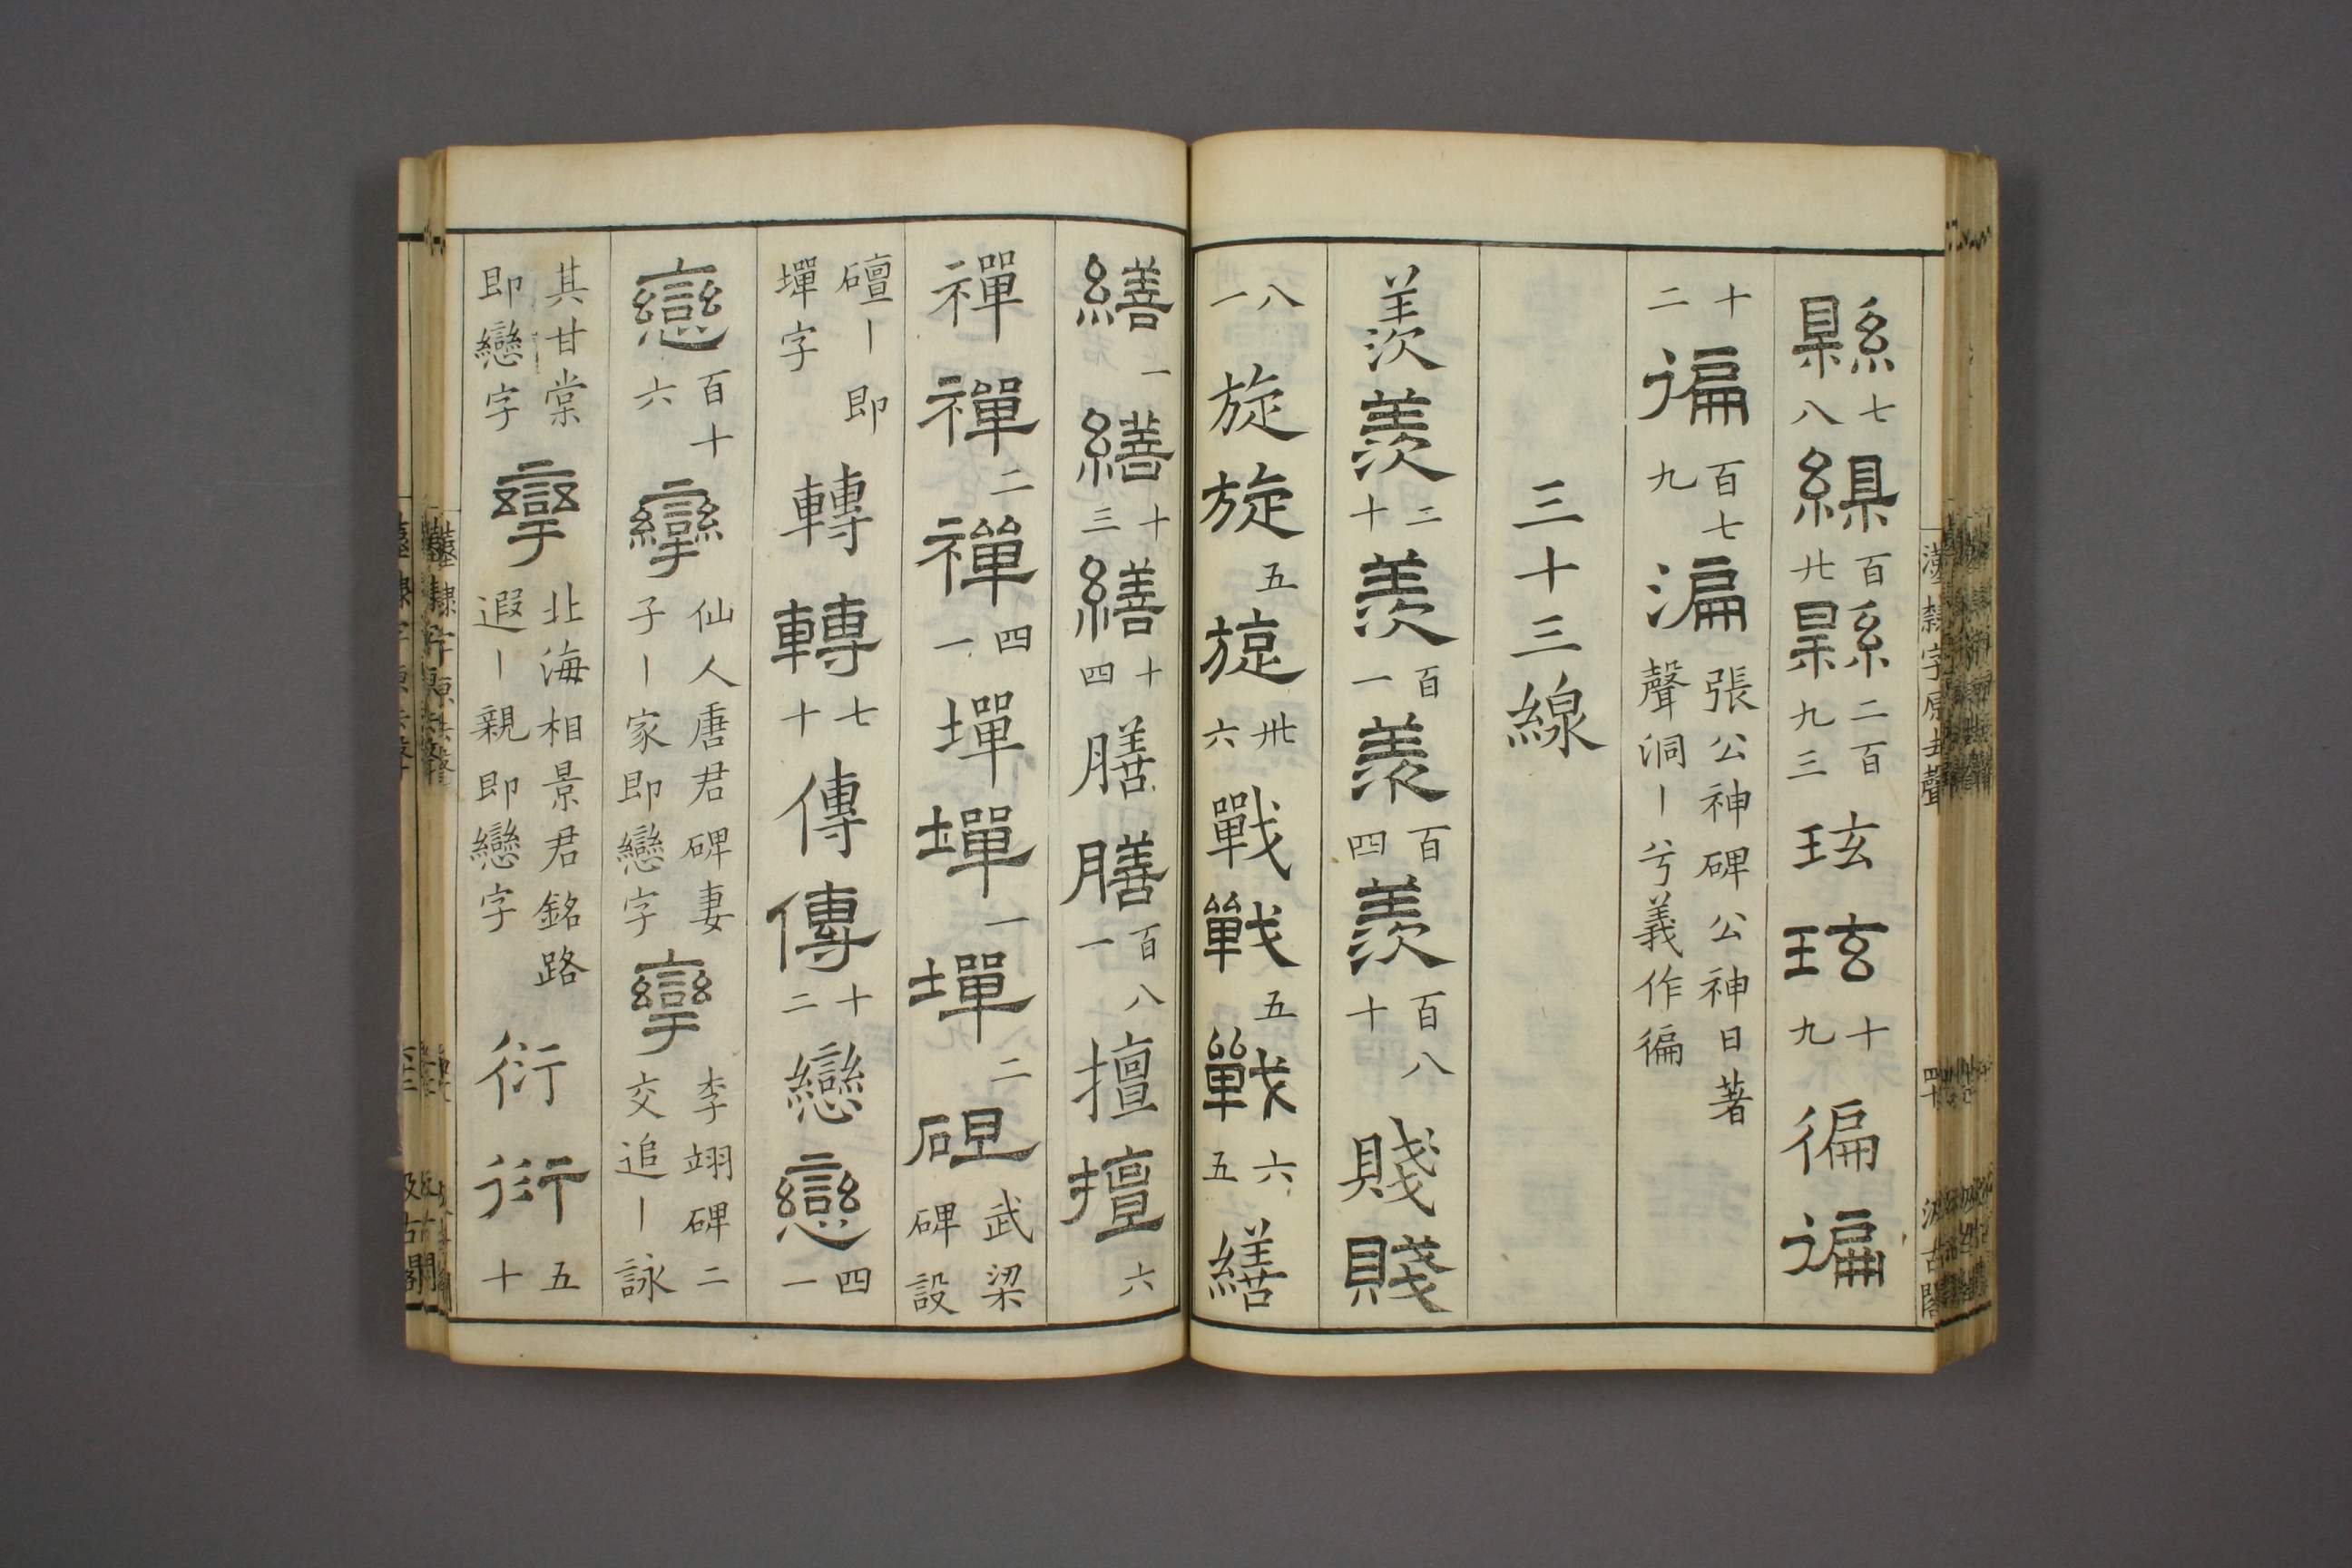 縣七八縣百廿縣二百九三玹玹十九徧徧
十二徧百七九漏張公神碑公神日著聲洞丨兮義作徧
三十三線
羡羡二十羡百一羡百四羡百八十賤賤
八一旋旋五旋卅六戰戰五戰六五繕
繕一繕十三繕十四膳膳百八一擅擅六
禪禪二禪四一墠墠一墠二𥐟武梁碑設
礑丨即墠字轉轉七十傳傳十二戀戀四一
戀百十六孿仙人唐君碑妻子丨家即戀字孿李翊碑二交追丨詠
其甘棠即戀字孿北海相景君銘路遐丨親即戀字衍衍五十
漢隸字原去聲 四十 汲古閣